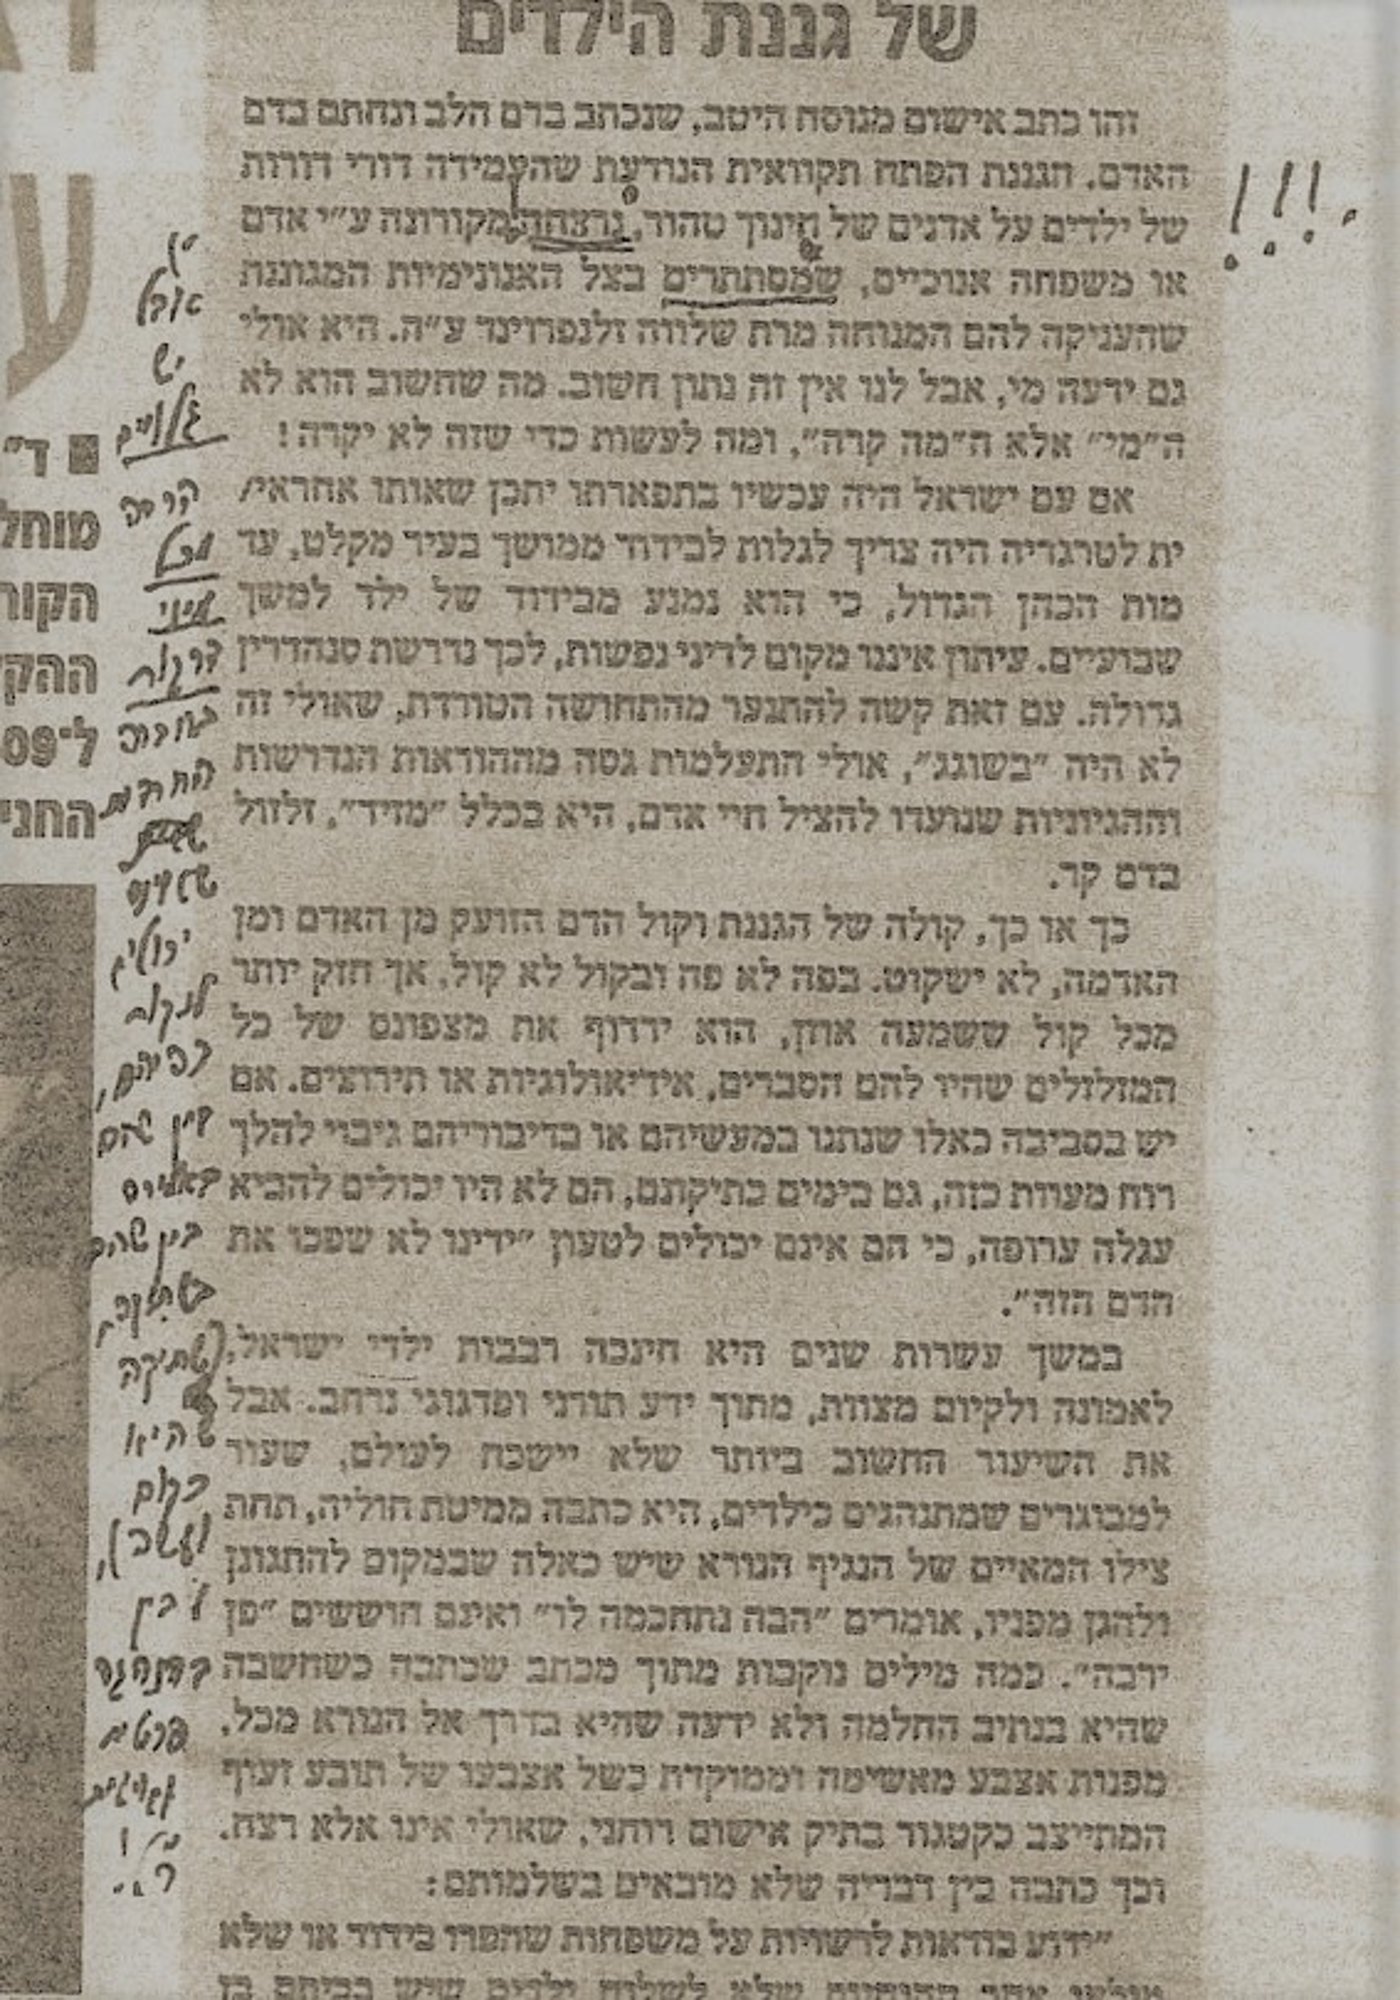 של גננת הילדים
זהו כתב אישום מנוסח היטב, שנכתב בדם הלב ונחתם בדם
האדם. הגננת הפתח תקוואית הנודעת שהעמידה דורי דורות
של ילדים על אדנים של חינוך טהור, נרצחה מקורונה ע״י אדם
או משפחה אנוכיים, שמסתתרים בצל האנונימיות המגוננת
שהעניקה להם המנוחה מרת שלווה זלנפרוינד ע״ה. היא אולי
גם ידעה מי, אבל לנו אין זה נתון חשוב. מה שחשוב הוא לא
ה״מי״ אלא ה״מה קרה״, ומה לעשות כדי שזה לא יקרה!
אם עם ישראל היה עכשיו בתפארתו יתכן שאותו אחראי/
ית לטרגדיה היה צריך לגלות לבידוד ממושך בעיר מקלט, עד
מות הכהן הגדול, כי הוא נמנע מבידוד של ילד למשך
שבועיים. עיתון איננו מקום לדיני נפשות, לכך נדרשת סנהדרין
גדולה. עם זאת קשה להתנער מהתחושה הטורדת, שאולי זה
לא היה ״בשוגג״, אולי התעלמות גסה מההוראות הנדרשות
וההגיוניות שנועדו להציל חיי אדם, היא בכלל ״מזיד״, זלזול
בדם קר.
כך או כך, קולה של הגננת וקול הדם הזועק מן האדם ומן
האדמה, לא ישקוט. בפה לא פה ובקול לא קול, אך חזק יותר
מכל קול ששמעה אוזן, הוא ירדוף את מצפונם של כל
המזלזלים שהיו להם הסברים, אידיאולוגיות או תירוצים. אם
יש בסביבה כאלו שנתנו במעשיהם או בדיבוריהם גיבוי להלך
רוח מעוות כזה, גם בימים כתיקונם, הם לא היו יכולים להביא
עגלה ערופה, כי הם אינם יכולים לטעון ״ידינו לא שפכו את
הדם הזה״.
במשך עשרות שנים היא חינכה רבבות ילדי ישראל,
לאמונה ולקיום מצוות, מתוך ידע תורני ופדגוגי נרחב. אבל
את השיעור החשוב ביותר שלא יישכח לעולם, שעור
למבוגרים שמתנהגים כילדים, היא כתבה ממיטת חוליה, תחת
צילו המאיים של הנגיף הנורא שיש כאלה שבמקום להתגונן
ולהגן מפניו, אומרים ״הבה נתחכמה לו״ ואינם חוששים ״פן
ירבה״. כמה מילים נוקבות מתוך מכתב שכתבה כשחשבה
שהיא בנתיב החלמה ולא ידעה שהיא בדרך אל הנורא מכל,
מפנות אצבע מאשימה וממוקדת כשל אצבעו של תובע זעוף
המתייצב כקטגור בתיק אישום רוחני, שאולי אינו אלא רצח.
וכך כתבה בין דבריה שלא מובאים בשלמותם:
״ידוע בודאות לרשויות על משפחות שהפרו בידוד או שלא
!!!
אבל
יש
גלויים
הרבה
מכל
מיני
דרגות
בחברה
החרדית
יכולים
לנקות
כפיהם,
בין שהם
באמירה
בין שהם
בשתיקה
שתיקה
שהיא
במקום
ובין
פרטית
ד״
מוחל
הקור
ההק
ל־09
החני